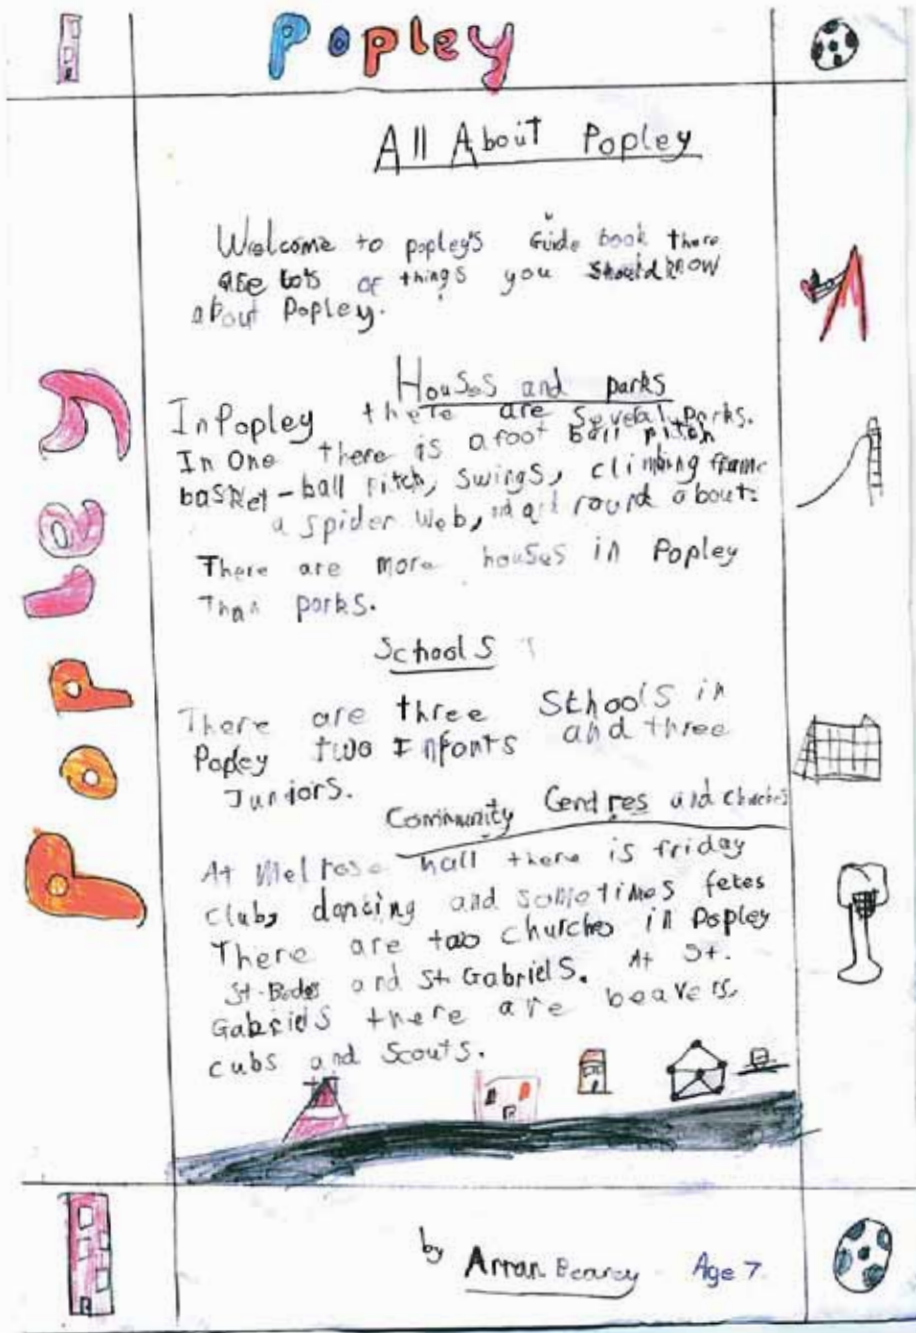 Popley
All About Popley
Welcome to popley's Guide book there
are lots of things you should know
about Popley.
Houses and parks
In Popley there are several parks.
In One there is a foot ball pitch
basket-ball pitch, swings, climbing frame
a spider web, and round about.
There are more houses in Popley
Than parks.
Schools
There are three Schools in
Popley two Infants and three
Juniors.
Community Centres and churches
At Melrose hall there is friday
club, dancing and sometimes fetes
There are two churches in Popley
St. Bedes and St. Gabriels. At St.
Gabriels there are beavers,
cubs and Scouts.
by Arran Bearcy Age 7
Popley